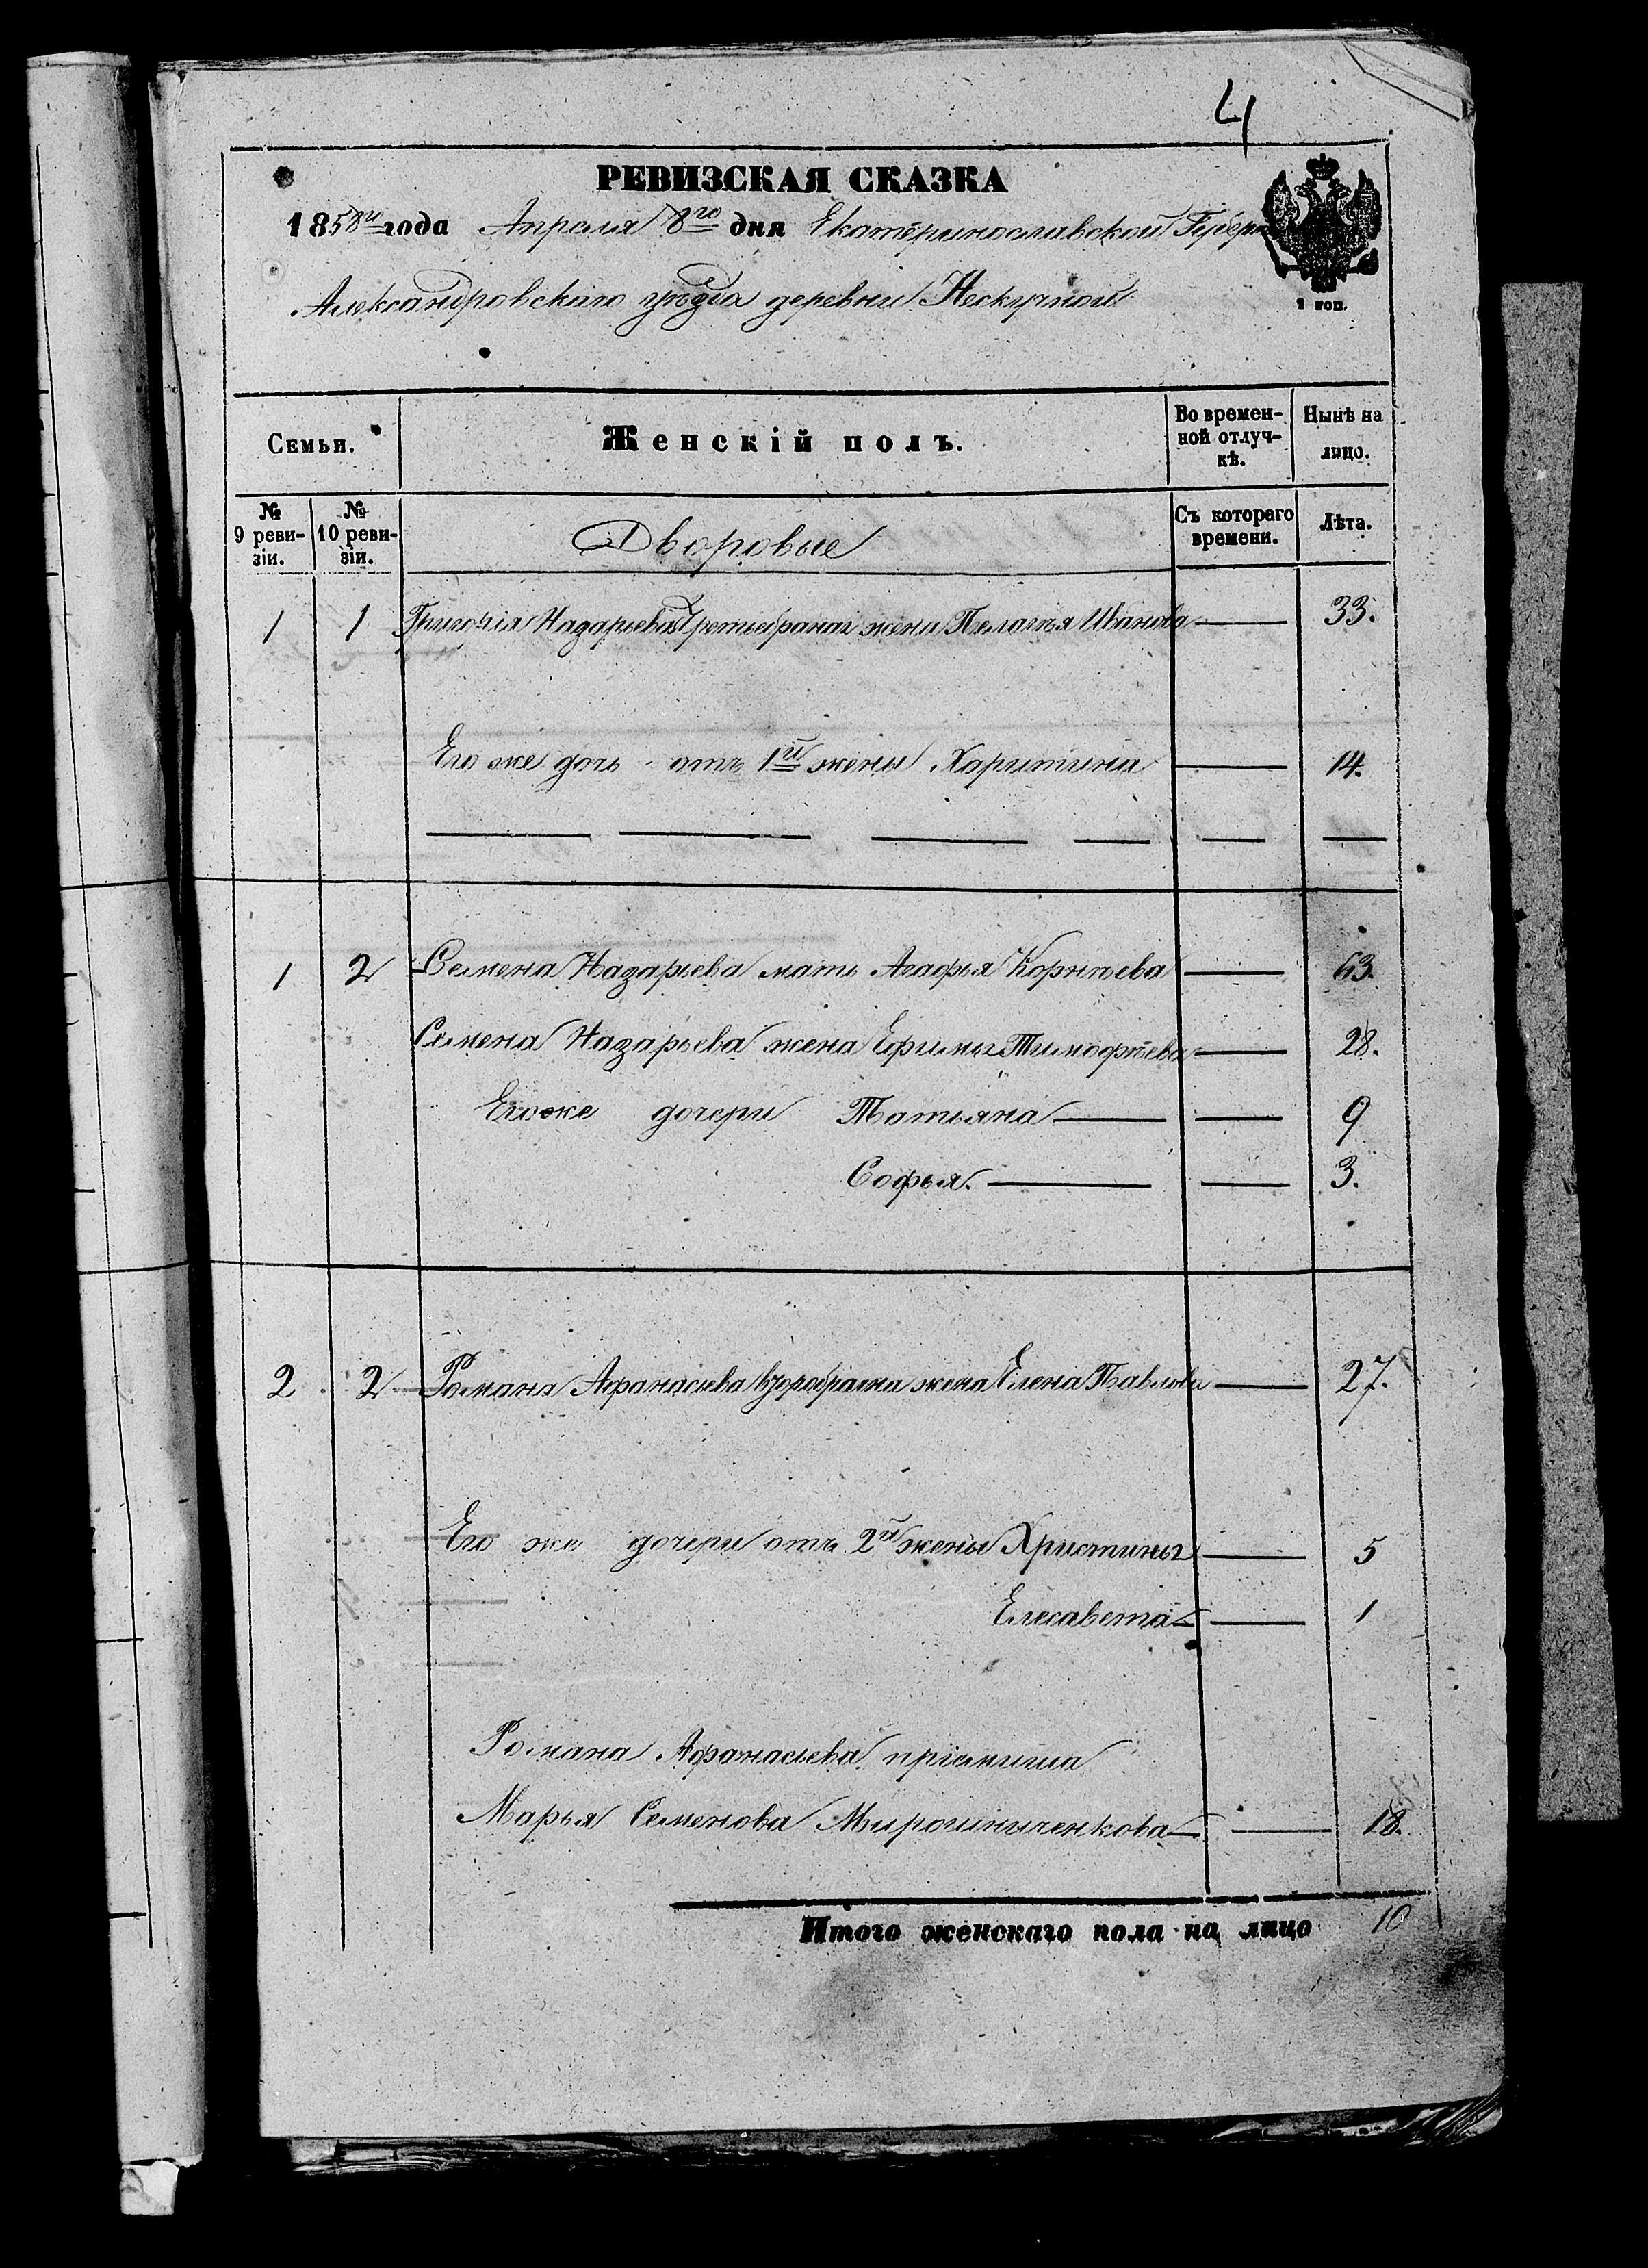 4
РЕВИЗСКАЯ СКАЗКА
1858го года Апреля 8го дня Екатеринославской Губерн
Александровскаго уѣзда деревни Нескучной
1 коп.
Семьи. Женскій полъ. Во времен- Нынѣ на
ной отлуч- лицо.
кѣ.
№ № Дворовые Съ котораго Лѣта.
9 реви- 10 реви- времени.
зіи. зіи.
1 1 Григорія Назарьева Третьебрачная жена Пелагѣя Иванова — 33.
Его же дочь отъ 1й жены Харитина — 14.
1 2 Семена Назарьева мать Агафья Корнѣева — 63.
Семена Назарьева жена Ефимья Тимофѣева — 28.
Егоже дочери Татьяна — — 9
Софья. — — 3.
2 2 Романа Афанасьева второбрачна жена Елена Павлова — 27.
Его же дочери отъ 2й жены Христинья — 5
Елесавета — — 1
Романа Афанасьева пріемыша
Марья Семенова Мирошниченкова — — 18.
Итого женскаго пола на лицо 10